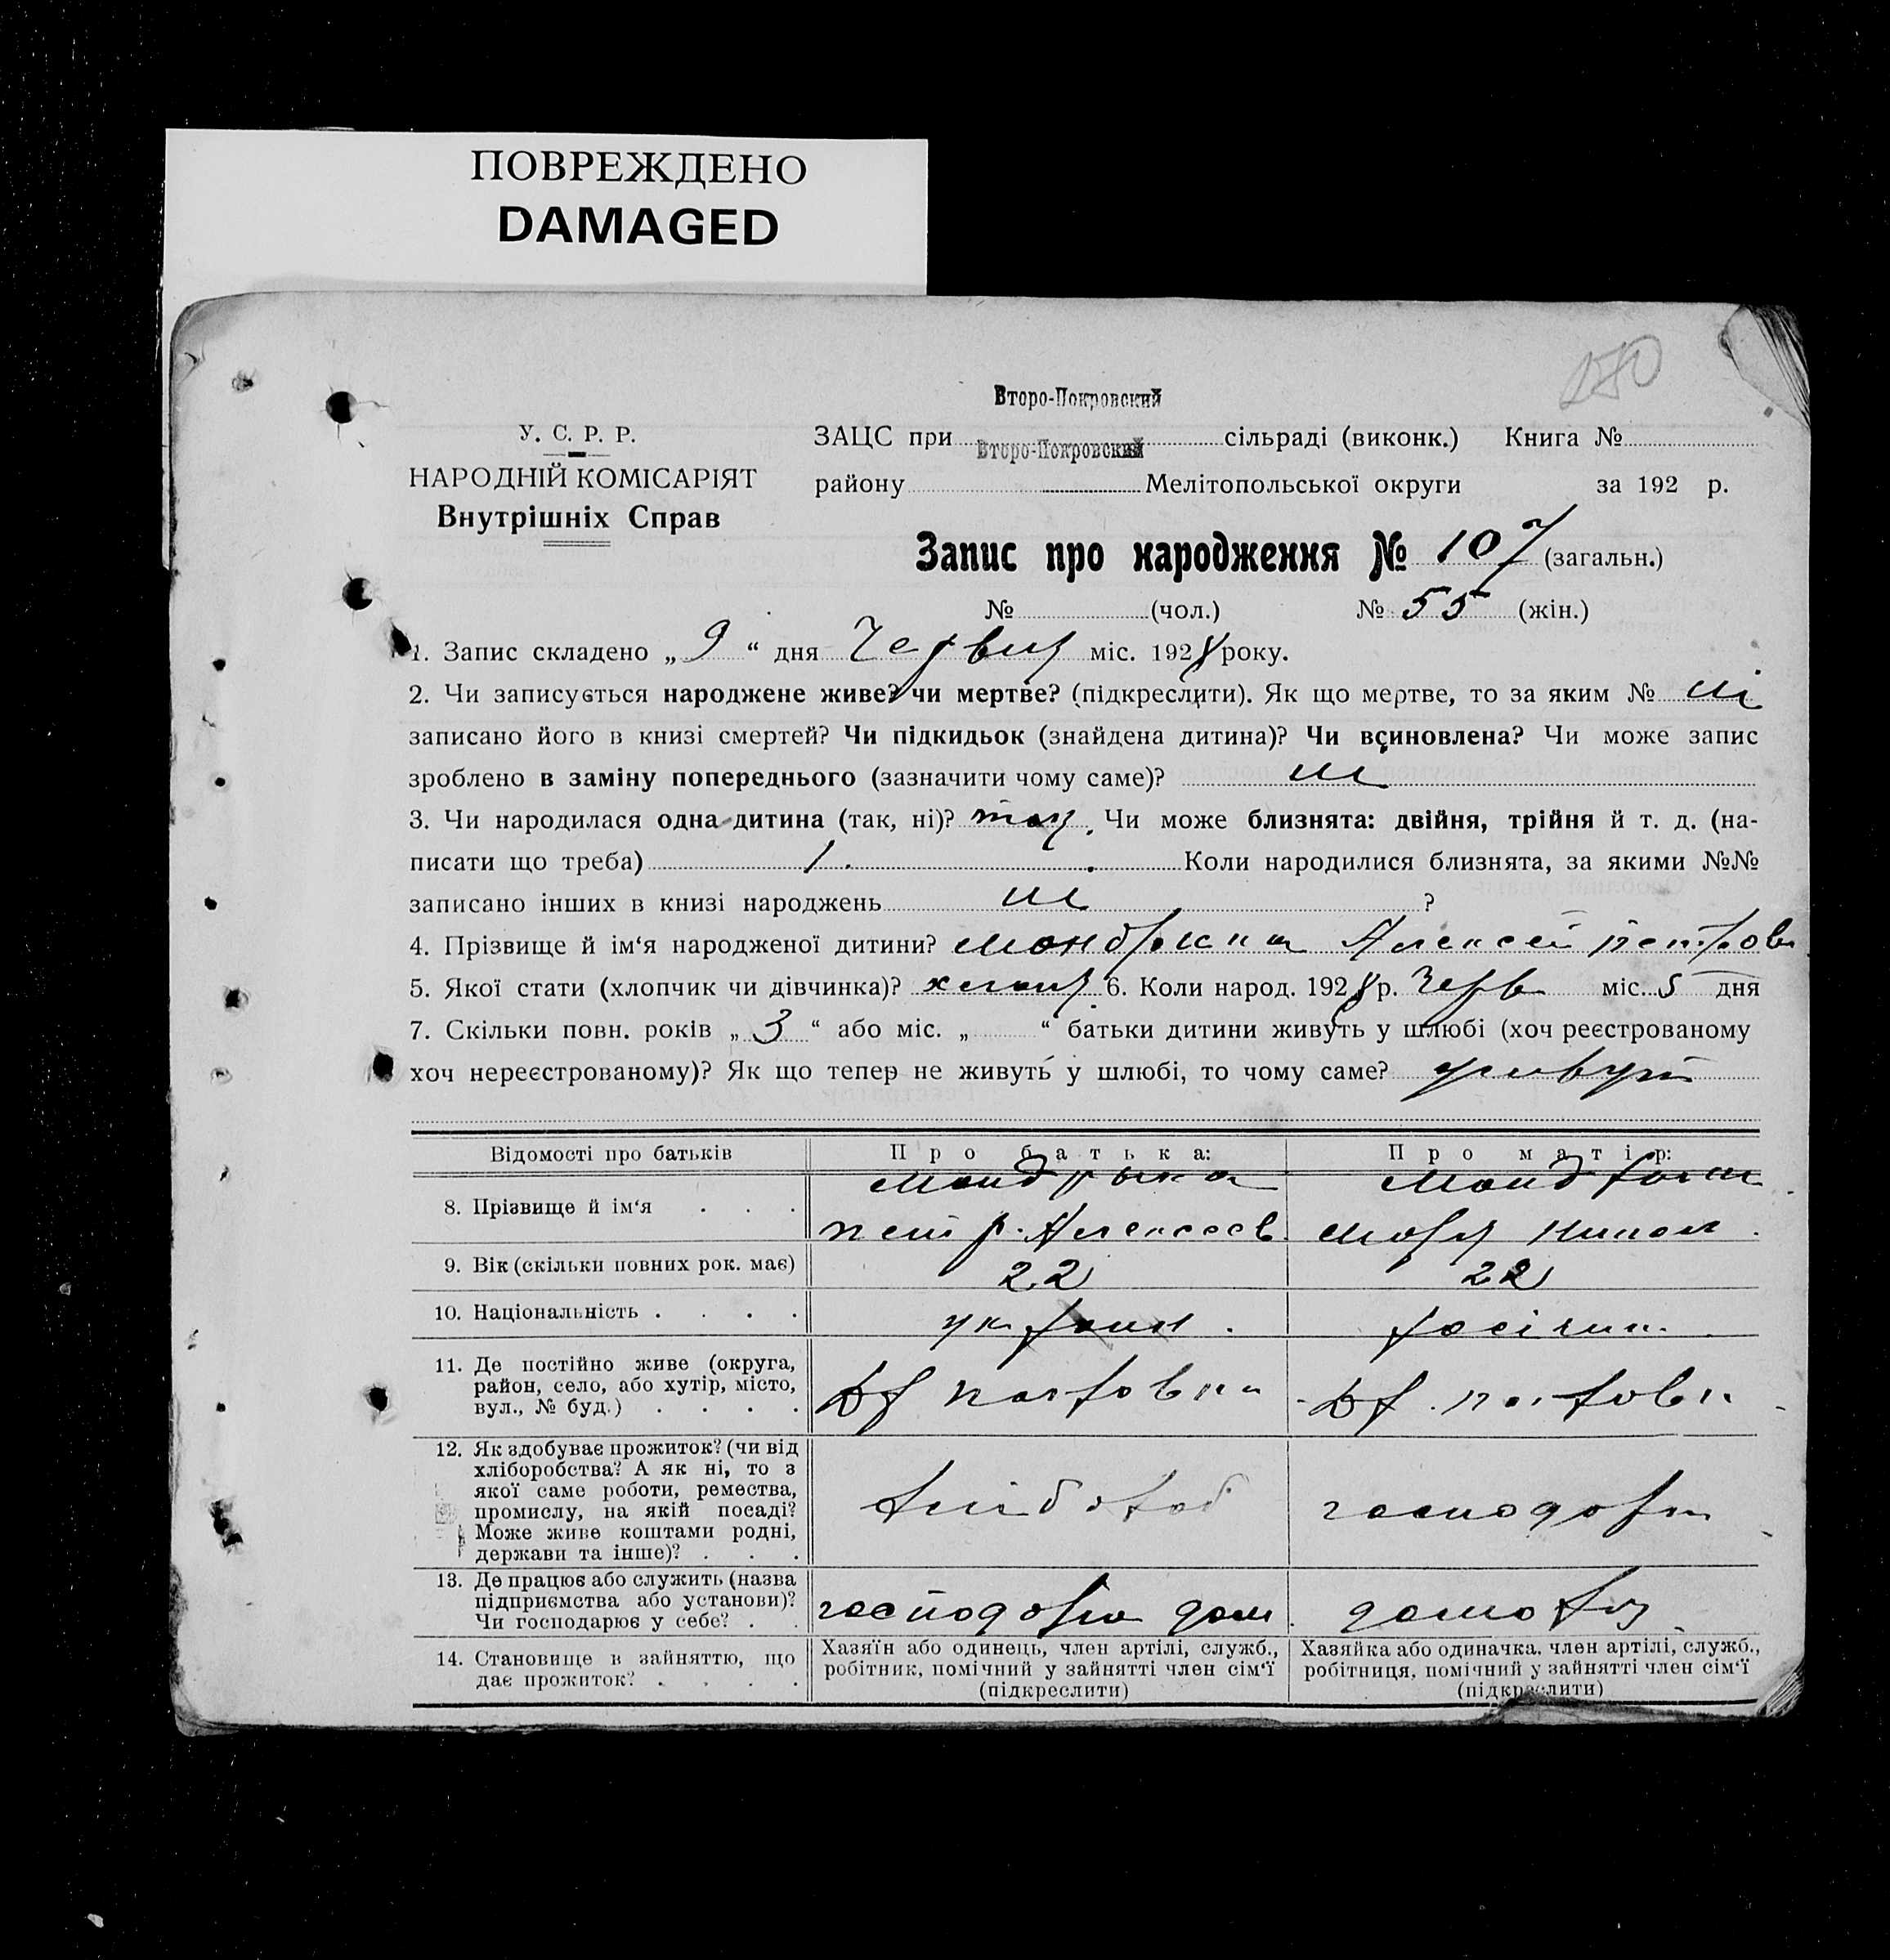 ПОВРЕЖДЕНО
DAMAGED
Второ-Покровский
У. С. Р. Р.
НАРОДНІЙ КОМІСАРІЯТ
Внутрішніх Справ
ЗАЦС при Второ-Покровский сільраді (виконк.) Книга №
району Мелітопольської округи за 192 р.
Запис про народження № 107 (загальн.)
№ (чол.) № 55 (жін.)
1. Запис складено „ 9 “ дня Червня міс. 1928 року.
2. Чи записується народжене живе? чи мертве? (підкреслити). Як що мертве, то за яким № ні
записано його в книзі смертей? Чи підкидьок (знайдена дитина)? Чи всиновлена? Чи може запис
зроблено в заміну попереднього (зазначити чому саме)? ні
3. Чи народилася одна дитина (так, ні)? так. Чи може близнята: двійня, трійня й т. д. (на-
писати що треба) 1. Коли народилися близнята, за якими №№
записано інших в книзі народжень ні ?
4. Прізвище й ім‘я народженої дитини? Мондрыка Алексей Петров
5. Якої стати (хлопчик чи дівчинка)? 6. Коли народ. 1928 р. Черв міс. 5 дня
7. Скільки повн. років „ 3 “ або міс. „ “ батьки дитини живуть у шлюбі (хоч реєстрованому
хоч нереєстрованому)? Як що тепер не живуть у шлюбі, то чому саме? живут
Відомості про батьків Про батька: Про матір:
8. Прізвище й ім‘я Мандрыка Петр. Алексеев. Мандрыка
9. Вік (скільки повних рок. має) 22 22
10. Національність
11. Де постійно живе (округа,
район, село, або хутір, місто,
вул., № буд.) Др Покровка Др. Покровк
12. Як здобуває прожиток? (чи від
хліборобства? А як ні, то з
якої саме роботи, ремества,
промислу, на якій посаді?
Може живе коштами родні,
держави та інше)? хлібороб господарк
13. Де працює або служить (назва
підприємства або установи)?
Чи господарює у себе? господарка дом.
14. Становище в зайняттю, що
дає прожиток?
Хазяїн або одинець, член артілі, служб.,
робітник, помічний у зайнятті член сім‘ї
(підкреслити)
Хазяйка або одиначка, член артілі, служб.,
робітниця, помічний у зайнятті член сім‘ї
(підкреслити)